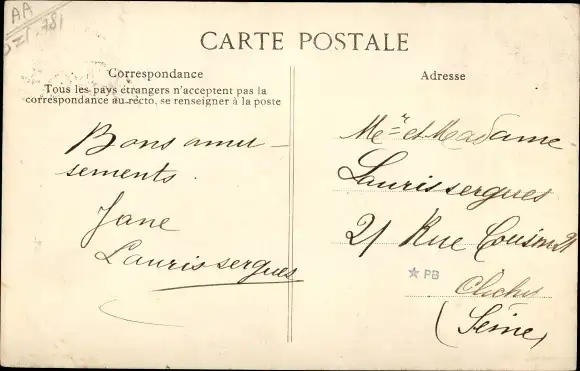 AA
CARTE POSTALE
Correspondance
Tous les pays étrangers n'acceptent pas la
correspondance au recto, se renseigner à la poste
Bons amu-
sements.
Jane
Laurissergues
Adresse
et Madame
Laurissergues
21 Rue
PB
Clichy
(Seine)